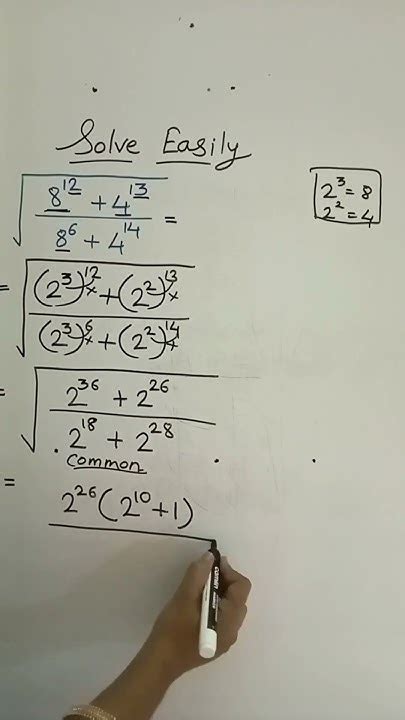 Solve Easily
√((8^12 + 4^13)/(8^6 + 4^14)) =
2^3 = 8
2^2 = 4
= √(((2^3)^12_x + (2^2)^13_x)/((2^3)^6_x + (2^2)^14_x))
= √((2^36 + 2^26)/(2^18 + 2^28))
common
= 2^26(2^10 + 1)